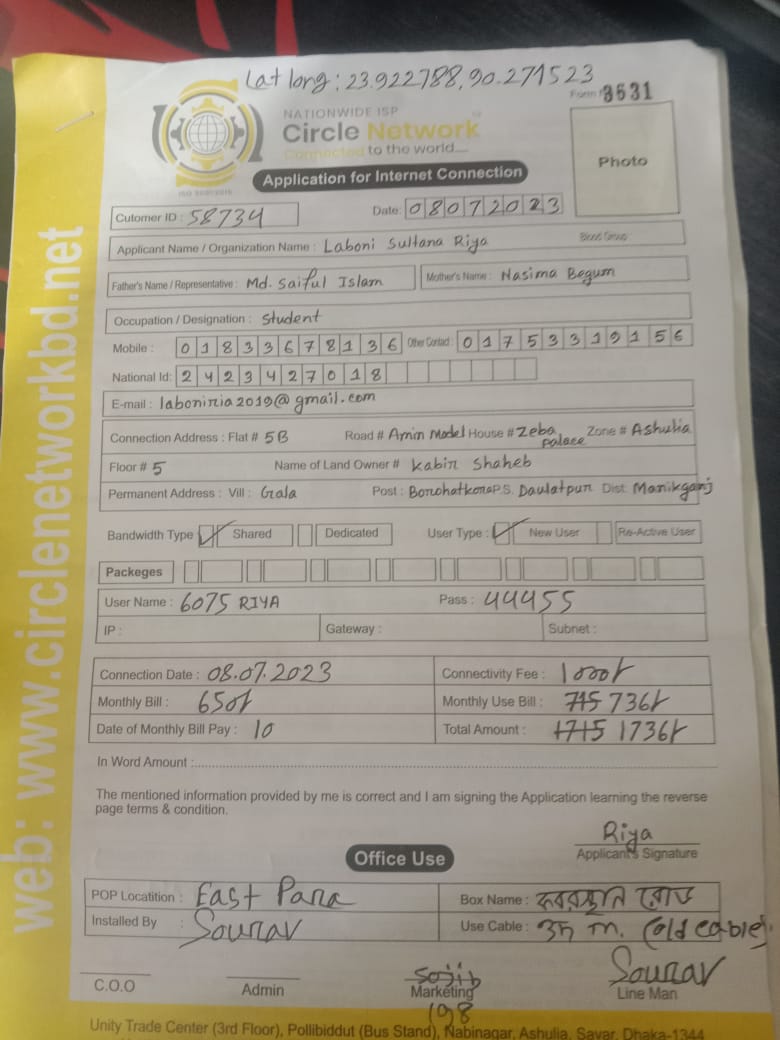 Lat long: 23.922788, 90.271523
Form # 3531
NATIONWIDE ISP
Circle Network
Connected to the world
ISO 9001:2015
Photo
Application for Internet Connection
Cutomer ID : 58734 Date: 08072023
Applicant Name / Organization Name : Laboni Sultana Riya Blood Group
Father's Name / Representative : Md. Saiful Islam Mother's Name : Nasima Begum
Occupation / Designation : Student
Mobile : 01833678136 Other Contact : 01753319156
National Id: 2423427018
E-mail : laboniria2019@gmail.com
Connection Address : Flat # 5B Road # Amin Model House # Zeba palace Zone # Ashulia
Floor # 5 Name of Land Owner # Kabir Shaheb
Permanent Address : Vill : Gala Post : P.S. Daulatpur Dist: Manikganj
Bandwidth Type Shared Dedicated User Type : New User Re-Active User
Packeges
User Name : 6075 RIYA Pass : 44455
IP : Gateway : Subnet :
Connection Date : 08.07.2023 Connectivity Fee : 1000/-
Monthly Bill : 650/- Monthly Use Bill : 715 736/-
Date of Monthly Bill Pay : 10 Total Amount : 1715 1736/-
In Word Amount :
The mentioned information provided by me is correct and I am signing the Application learning the reverse
page terms & condition.
Riya
Applicant's Signature
Office Use
POP Locatition : East Para Box Name : কবরস্থান রোড
Installed By : Sourav Use Cable : m. (old cable)
C.O.O
Admin
Sojib
Marketing
198
Sourav
Line Man
Unity Trade Center (3rd Floor), Pollibiddut (Bus Stand), Nabinagar, Ashulia, Savar, Dhaka-1344
web: www.circlenetworkbd.net